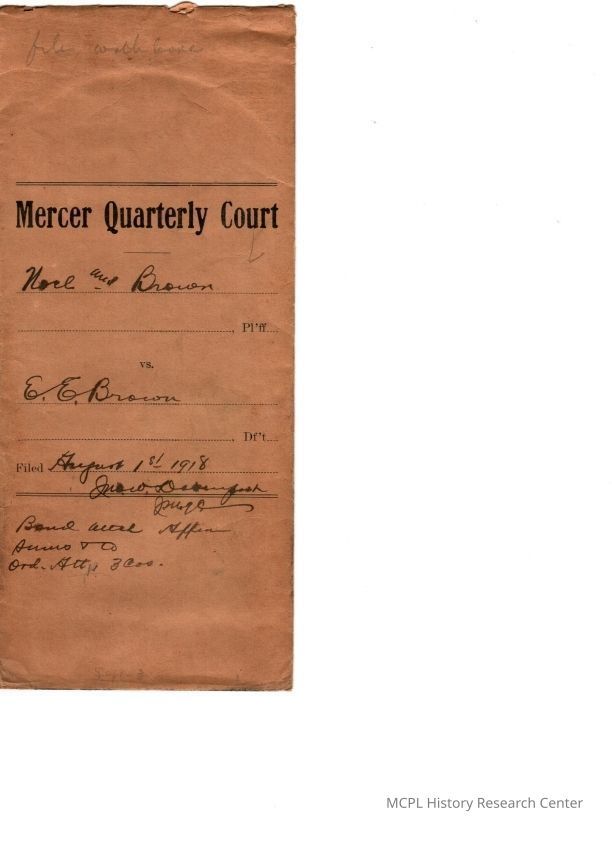 Mercer Quarterly Court
Noel and Brown
, Pl'ff.
vs.
E. E. Brown
, Df't.
Filed August 1st 1918
Jno. W. Davenport
Judge
Bond attch
Ord. Atty 3 Cos.
MCPL History Research Center